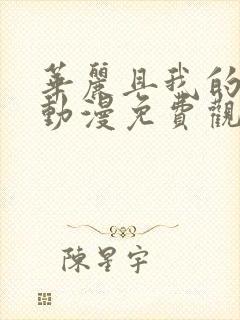 華麗且我的
動漫免費觀
陳星宇